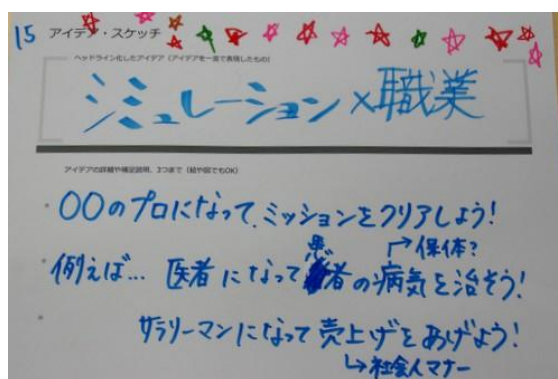 15 アイデア・スケッチ
ヘッドライン化したアイデア（アイデアを一言で表現したもの）
シミュレーション×職業
アイデアの詳細や補足説明、3つまで（絵や図でもOK）
・〇〇のプロになって、ミッションをクリアしよう!
→保体?
例えば… 医者になって患者の病気を治そう!
・サラリーマンになって売上げをあげよう!
↳社会人マナー